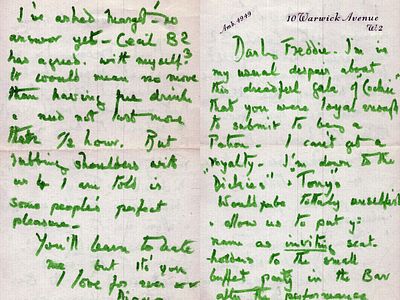 I've asked Margt - no
answer yet - Cecil B?
has agreed. with myself?
It would mean no more
than having free drink
& need not last more
than 1/2 hour. But
rubbing shoulders with
us 4 I am told is
some people's perfect
pleasure -
You'll learn to hate
me but it's you
I love for ever xx
Diana
Amb. 4949
10 Warwick Avenue
W2
Freddie. I'm in
my usual despair about
this dreadful Gala of
that you were loyal enough
to submit to being a
Patron. I can't get a
"royalty" - I'm down to the
"Dickies" & "Tonys"
Would you totally unselfish
& allow us to put yr
name as inviting seat-
holders to the small
buffet party in the Bar
after the performance